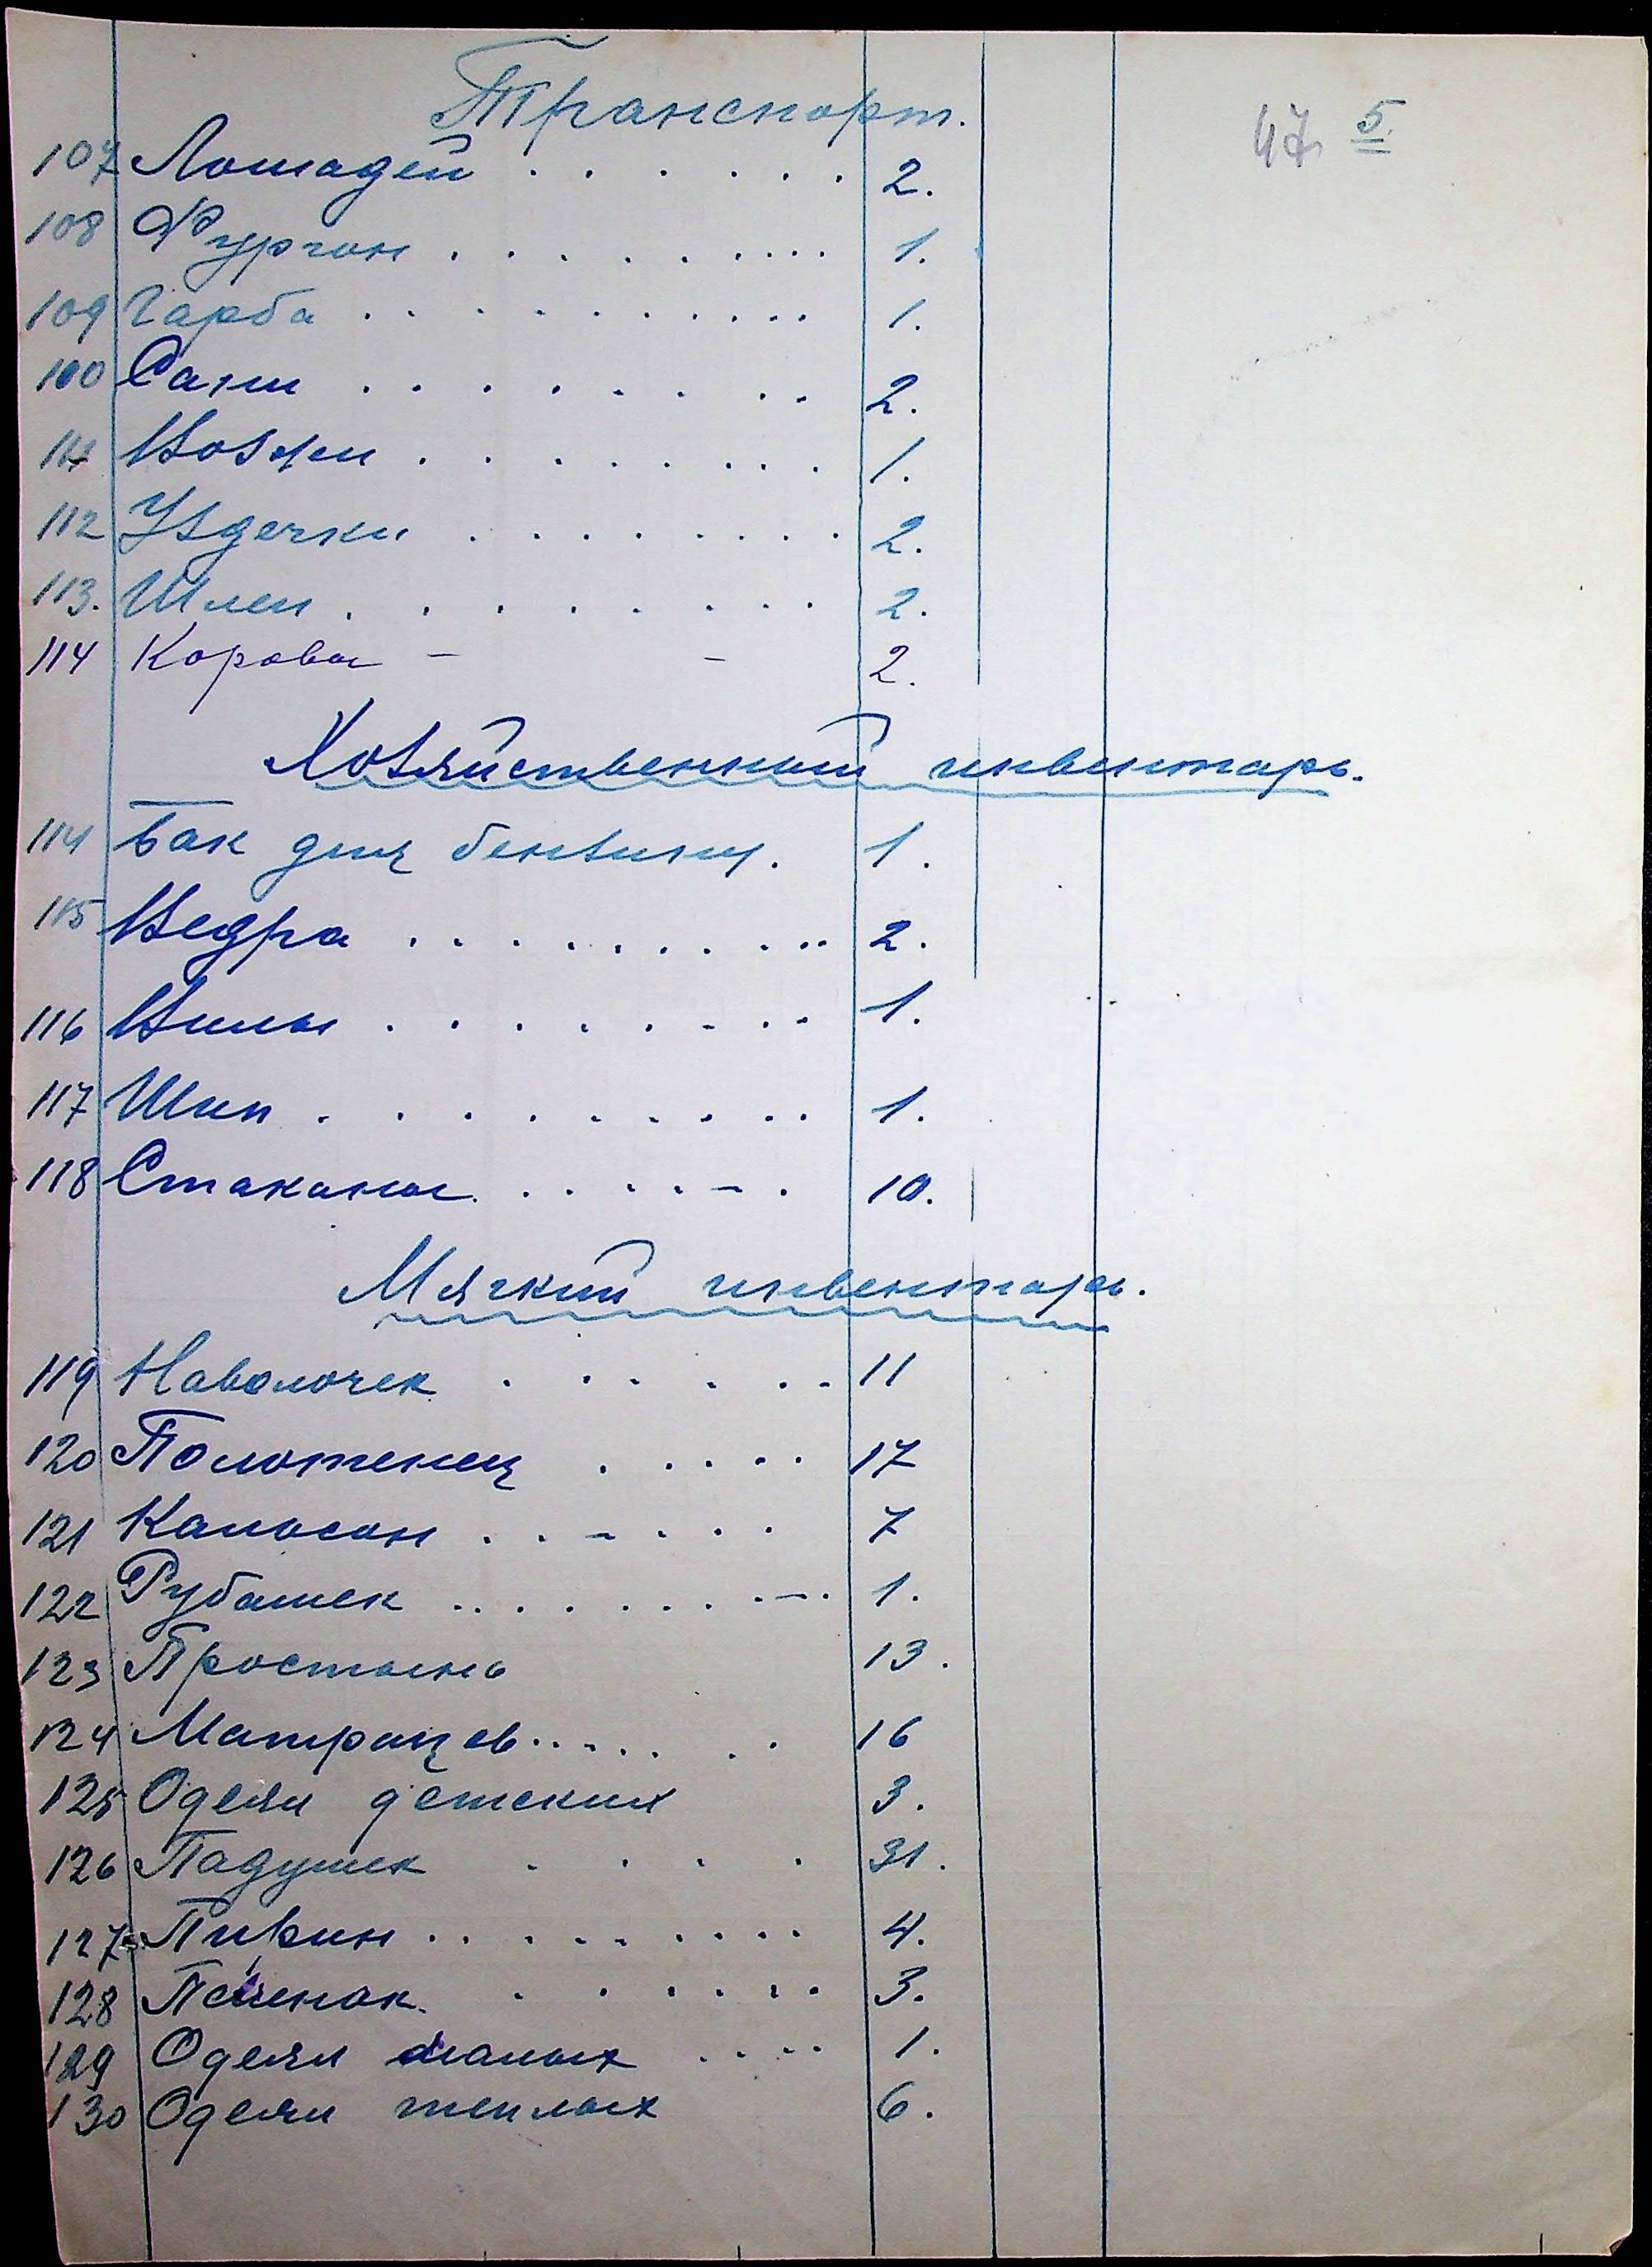 Транспорт.
47. 5.
107 Лошадей . . . . . . 2.
108 Фургон . . . . . . . . . 1.
109 Гарба . . . . . . . . . . 1.
100 Сани . . . . . . . . 2.
111 Вожжи . . . . . . . . 1.
112 Уздечки . . . . . . . . 2.
113. Шлеи . . . . . . . . 2.
114 Коровы - - 2.
Хозяйственный инвентарь.
114 Бак для бензину. 1.
115 Ведра . . . . . . . . . . 2.
116 Вилы . . . . . . . . . 1.
117 Шип . . . . . . . . . . 1.
118 Стаканы . . . . . - . 10.
Мягкий инвентарь.
119 Наволочек . . . . . . . 11
120 Полотенец . . . . . 17
121 Кальсон . . - . . . 7
122 Рубашек . . . . . . . . - . 1.
123 Простынь 13.
124 Матрацев . . . . . . . 16
125 Одеял детских 3.
126 Падушек . . . . 31.
127 Пирин . . . . . . . . . 4.
128 . . . . . . 3.
129 Одеял малых . . . . 1.
130 Одеял теплых 6.